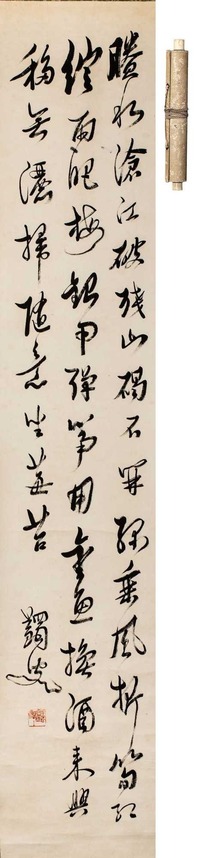 賸水滄江破殘山碣石開綠垂風折筍紅
綻雨肥梅銀甲彈箏用金魚換酒來興
移無灑掃隨意坐莓苔
蠲叟